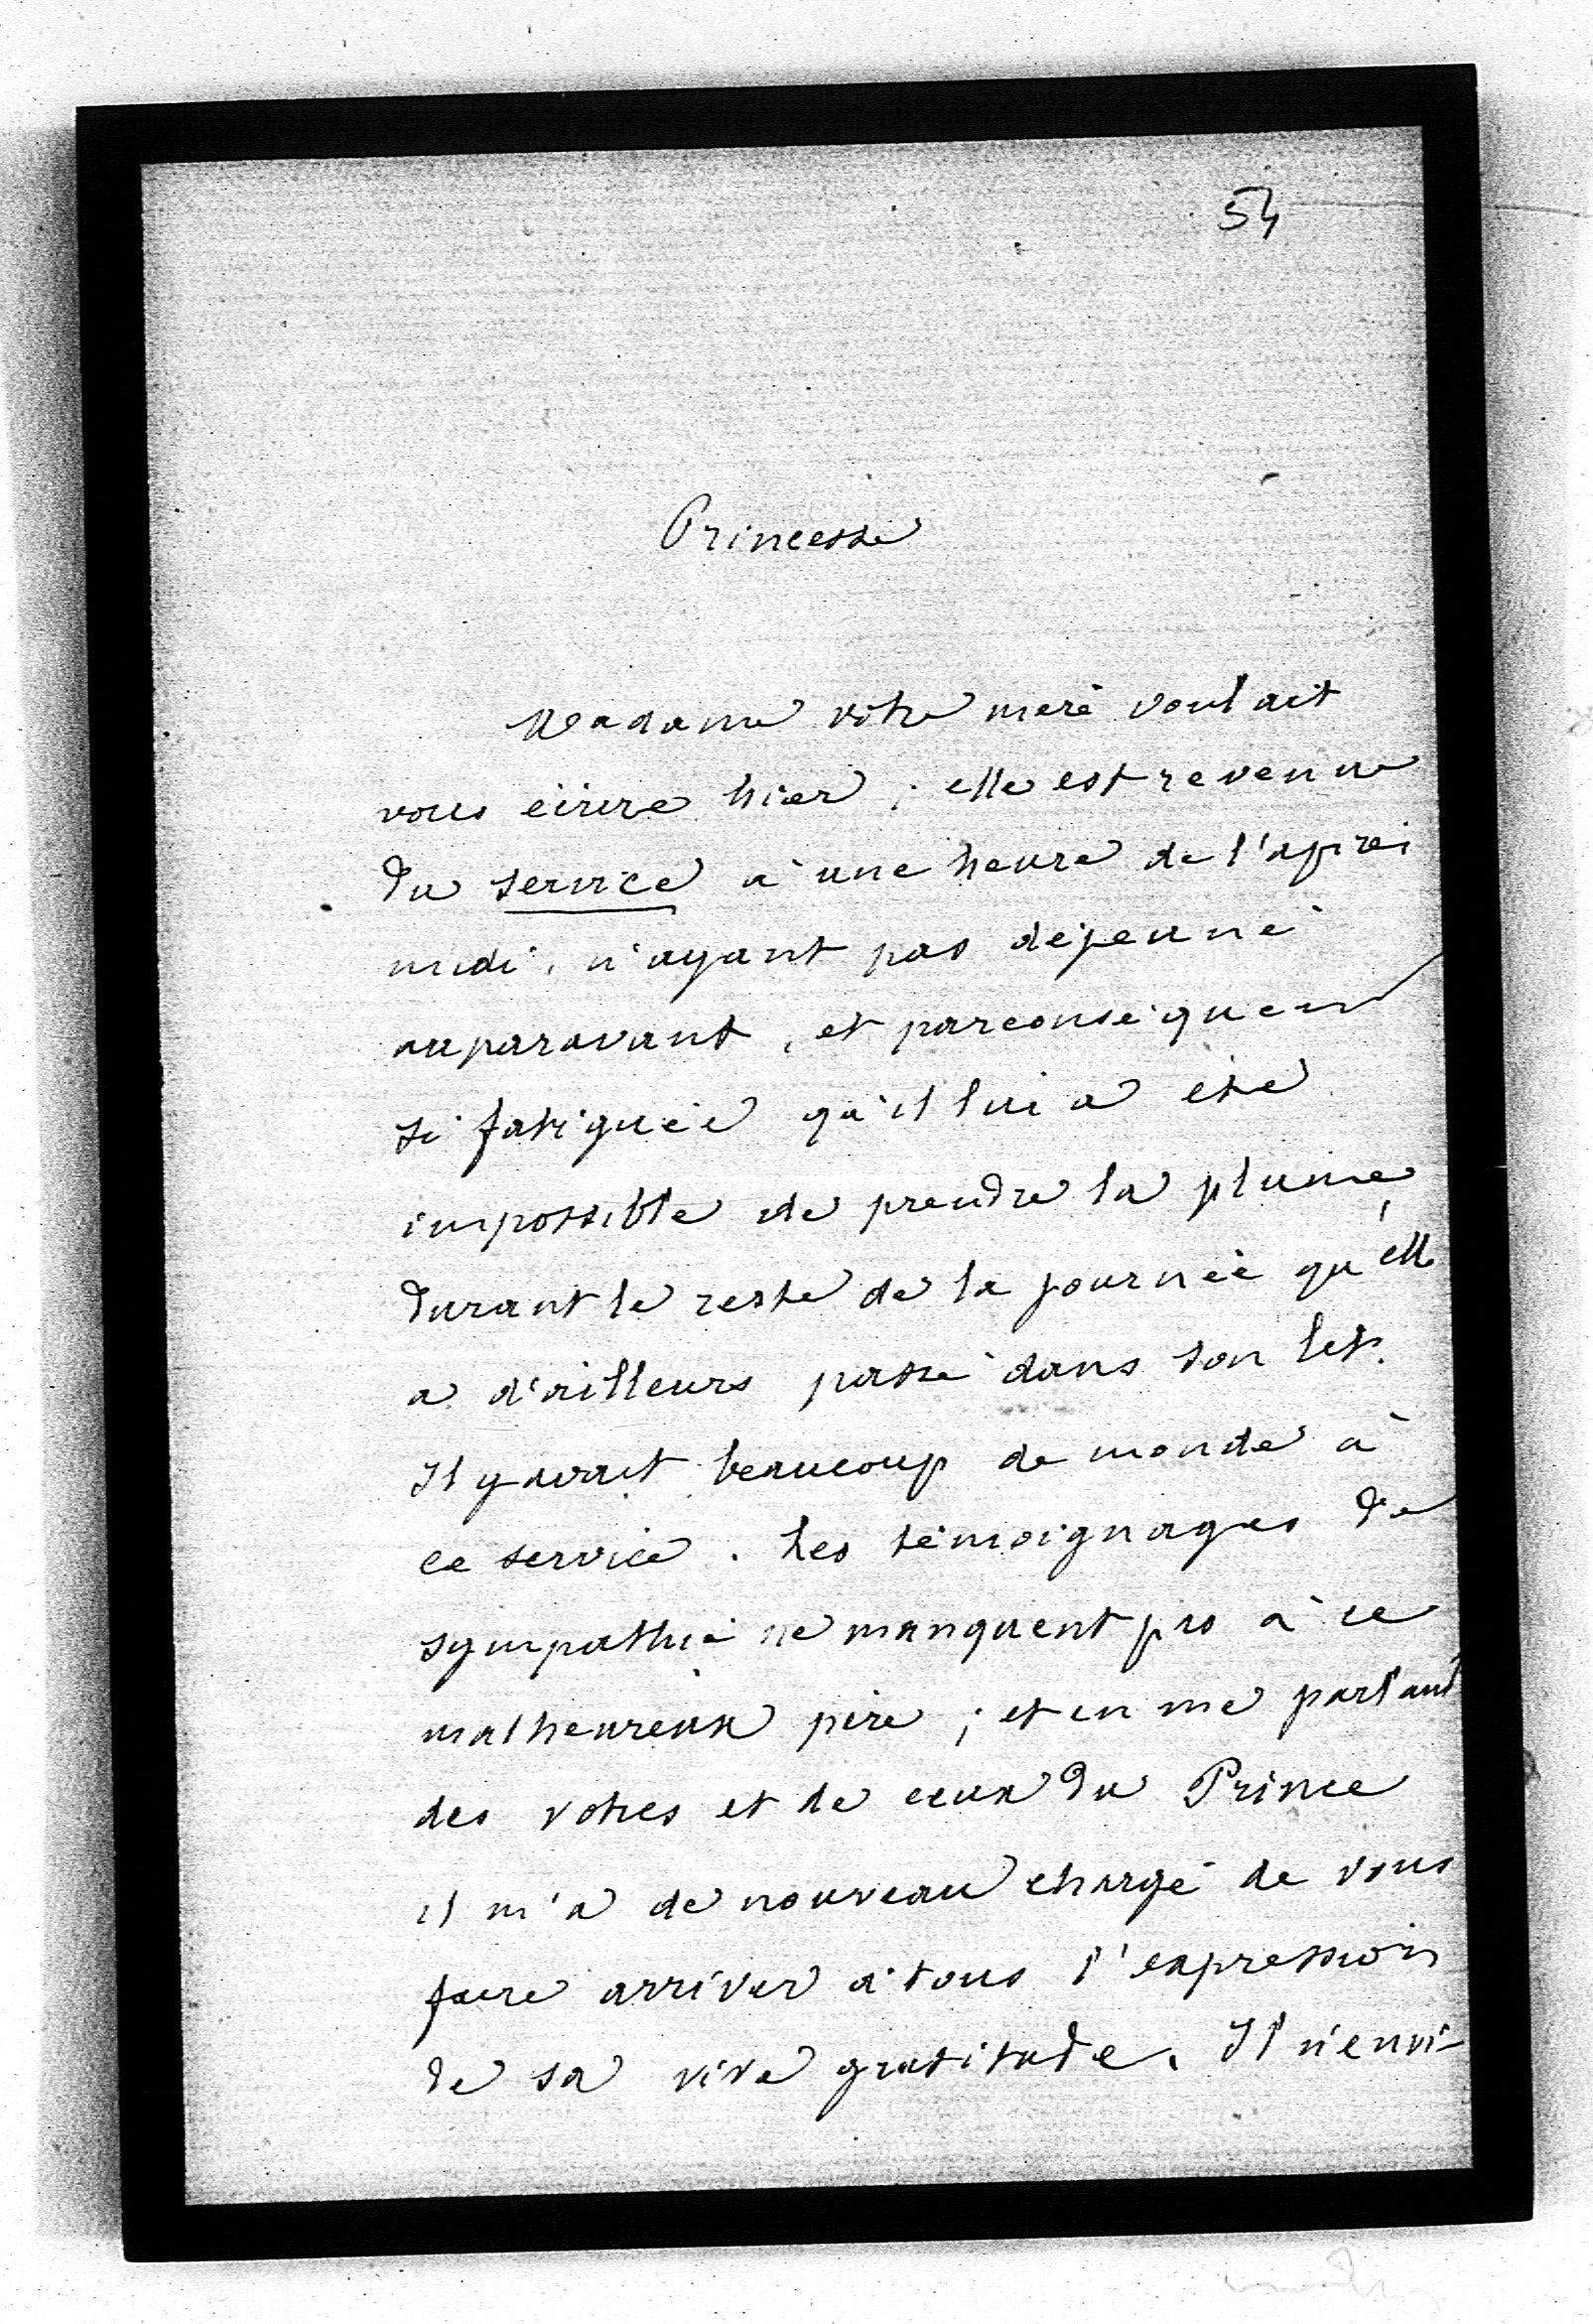 54
Princesse
Madame votre mère voulait
vous écrire hier ; elle est revenue
du service à une heure de l'après
midi, n'ayant pas déjeuné
auparavant, et parconséquent
si fatiguée qu'il lui a été
impossible de prendre la plume
durant le reste de la journée qu'elle
a d'ailleurs passé dans son lit.
Il y avait beaucoup de monde à
ce service. Les témoignages de
sympathie ne manquent pas à ce
malheureux père ; et en me parlant
des votres et de ceux du Prince
il m'a de nouveau chargé de vous
faire arriver à tous l'expression
de sa vive gratitude. Il n'envi-